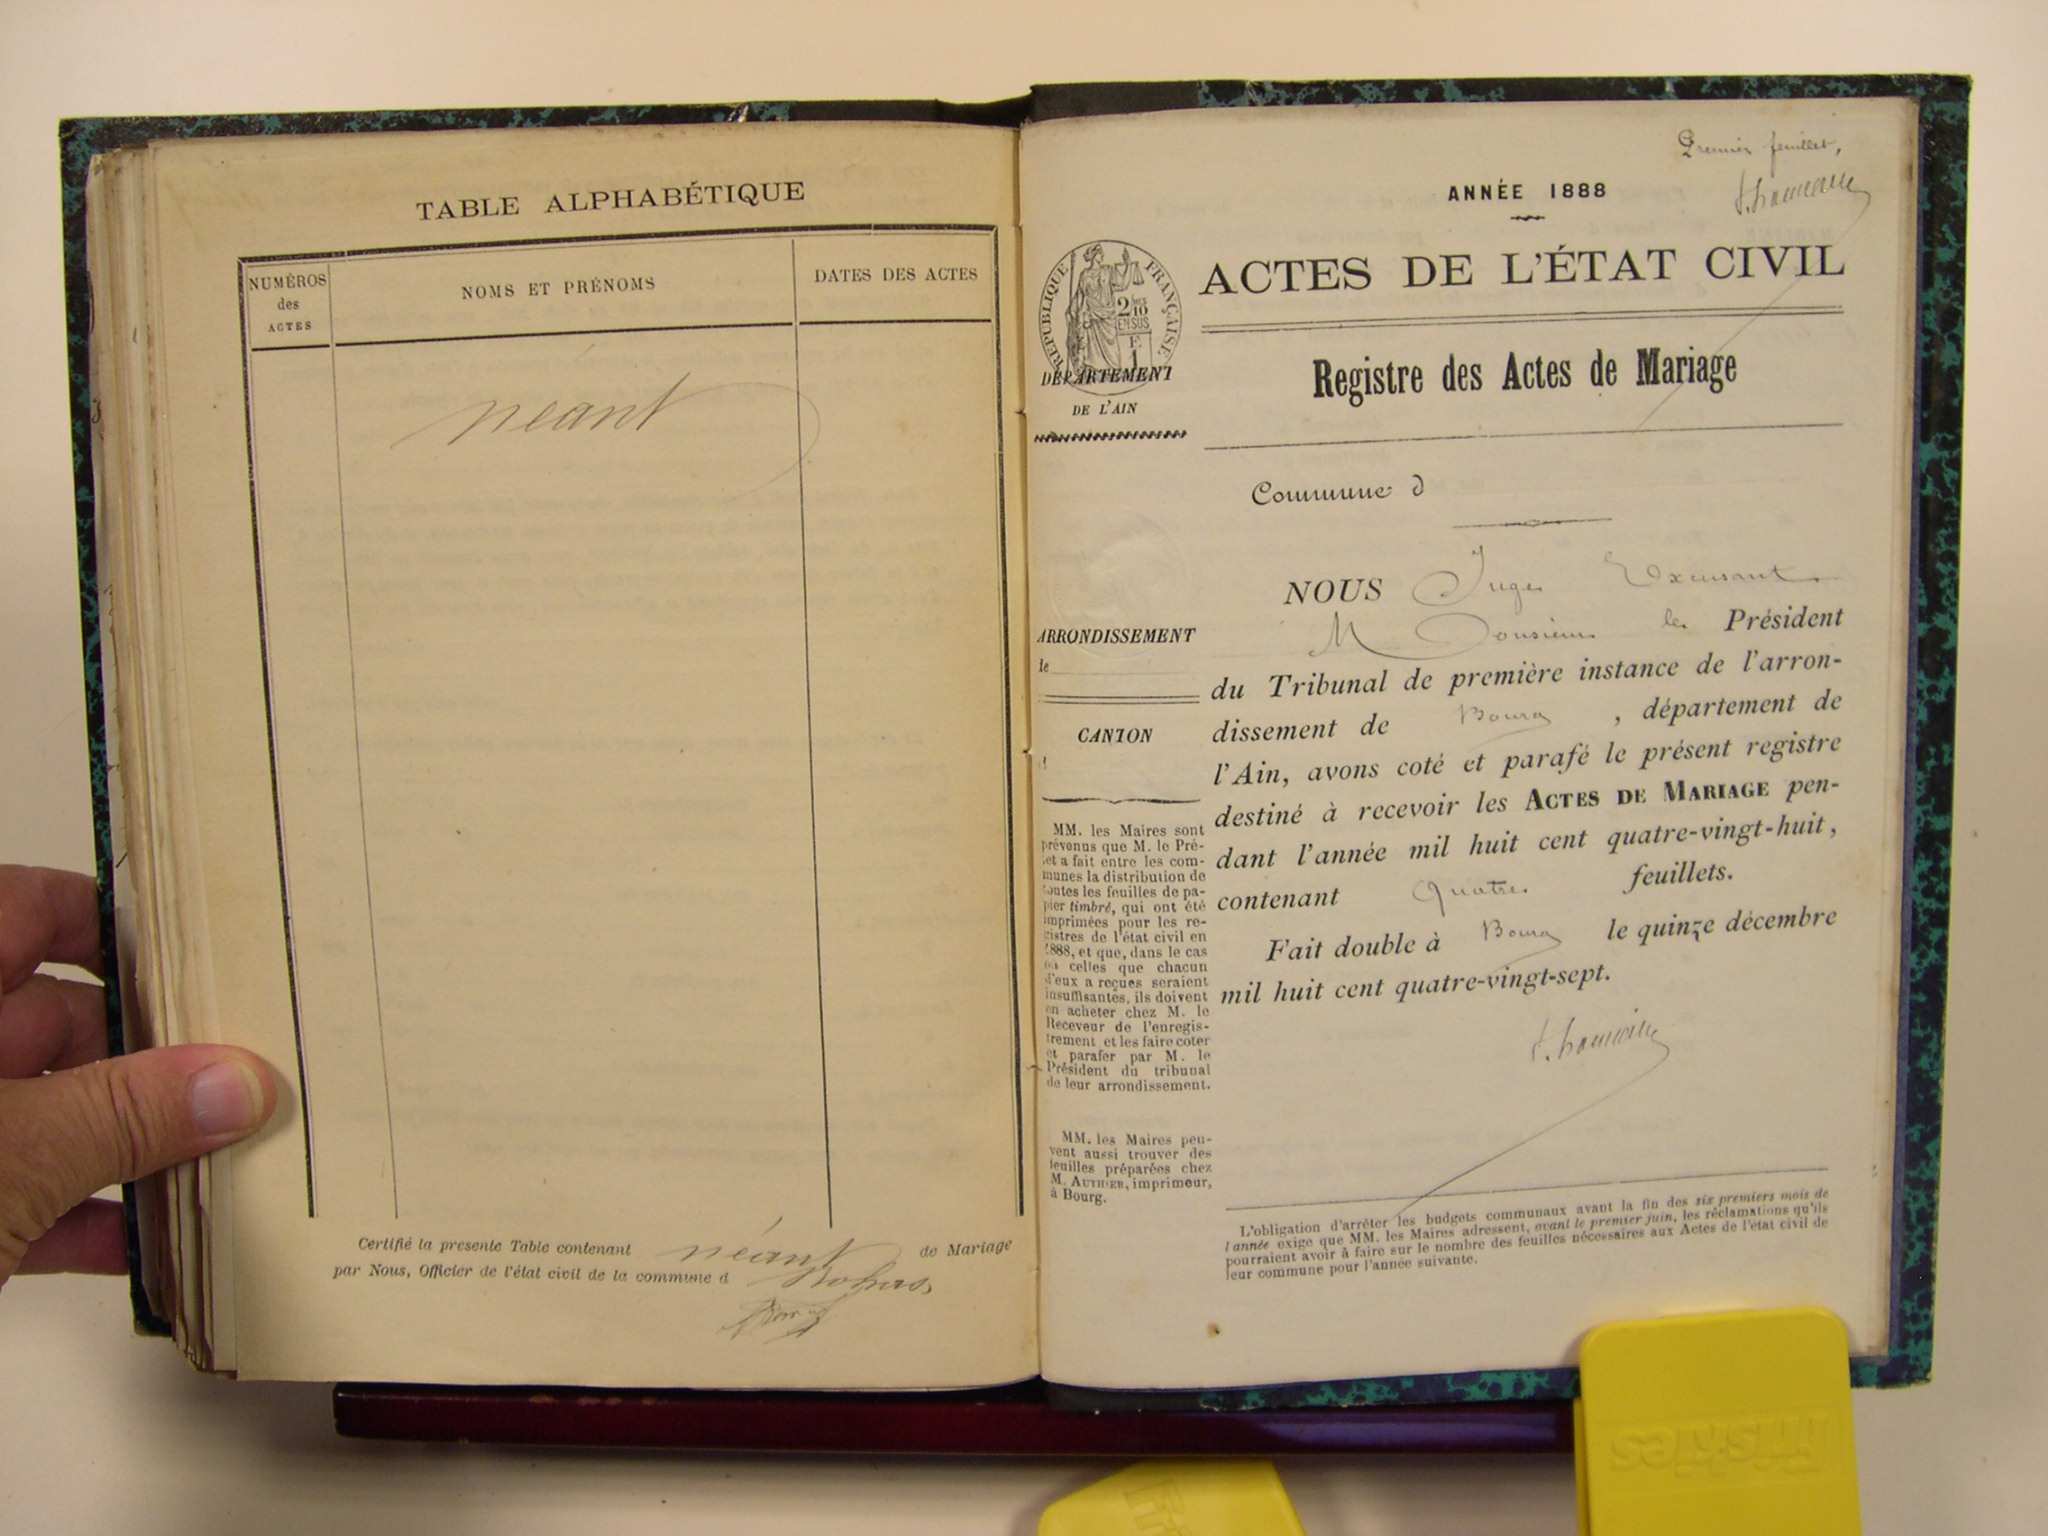 TABLE ALPHABÉTIQUE
NUMÉROS
des
ACTES
NOMS ET PRÉNOMS
DATES DES ACTES
néant
Certifié la présente Table contenant néant de Mariage
par Nous, Officier de l'état civil de la commune d
Premier feuillet,
ANNÉE 1888
ACTES DE L'ÉTAT CIVIL
RÉPUBLIQUE FRANÇAISE
2/10
EN SUS
E
1
DÉPARTEMENT
DE L'AIN
Registre des Actes de Mariage
Commune d
ARRONDISSEMENT
de
CANTON
d
NOUS Juge
Monsieur le Président
du Tribunal de première instance de l'arron-
dissement de Bourg, département de
l'Ain, avons coté et parafé le présent registre
destiné à recevoir les ACTES DE MARIAGE pen-
dant l'année mil huit cent quatre-vingt-huit,
contenant quatre feuillets.
Fait double à Bourg le quinze décembre
mil huit cent quatre-vingt-sept.
MM. les Maires sont
prévenus que M. le Pré-
fet a fait entre les com-
munes la distribution de
toutes les feuilles de pa-
pier timbré, qui ont été
imprimées pour les re-
gistres de l'état civil en
1888, et que, dans le cas
où celles que chacun
d'eux a reçues seraient
insuffisantes, ils doivent
en acheter chez M. le
Receveur de l'enregis-
trement et les faire coter
et parafer par M. le
Président du tribunal
de leur arrondissement.
MM. les Maires peu-
vent aussi trouver des
feuilles préparées chez
M. AUTHIER, imprimeur,
à Bourg.
L'obligation d'arrêter les budgets communaux avant la fin des six premiers mois de
l'année exige que MM. les Maires adressent, avant le premier juin, les réclamations qu'ils
pourraient avoir à faire sur le nombre des feuilles nécessaires aux Actes de l'état civil de
leur commune pour l'année suivante.
Friskies